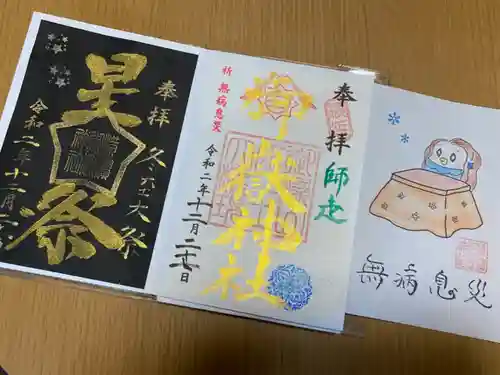 奉拝
星祭
令和二年十二月
奉拝
師走
御嶽神社
祈 無病息災
令和二年十二月二十七日
無病息災